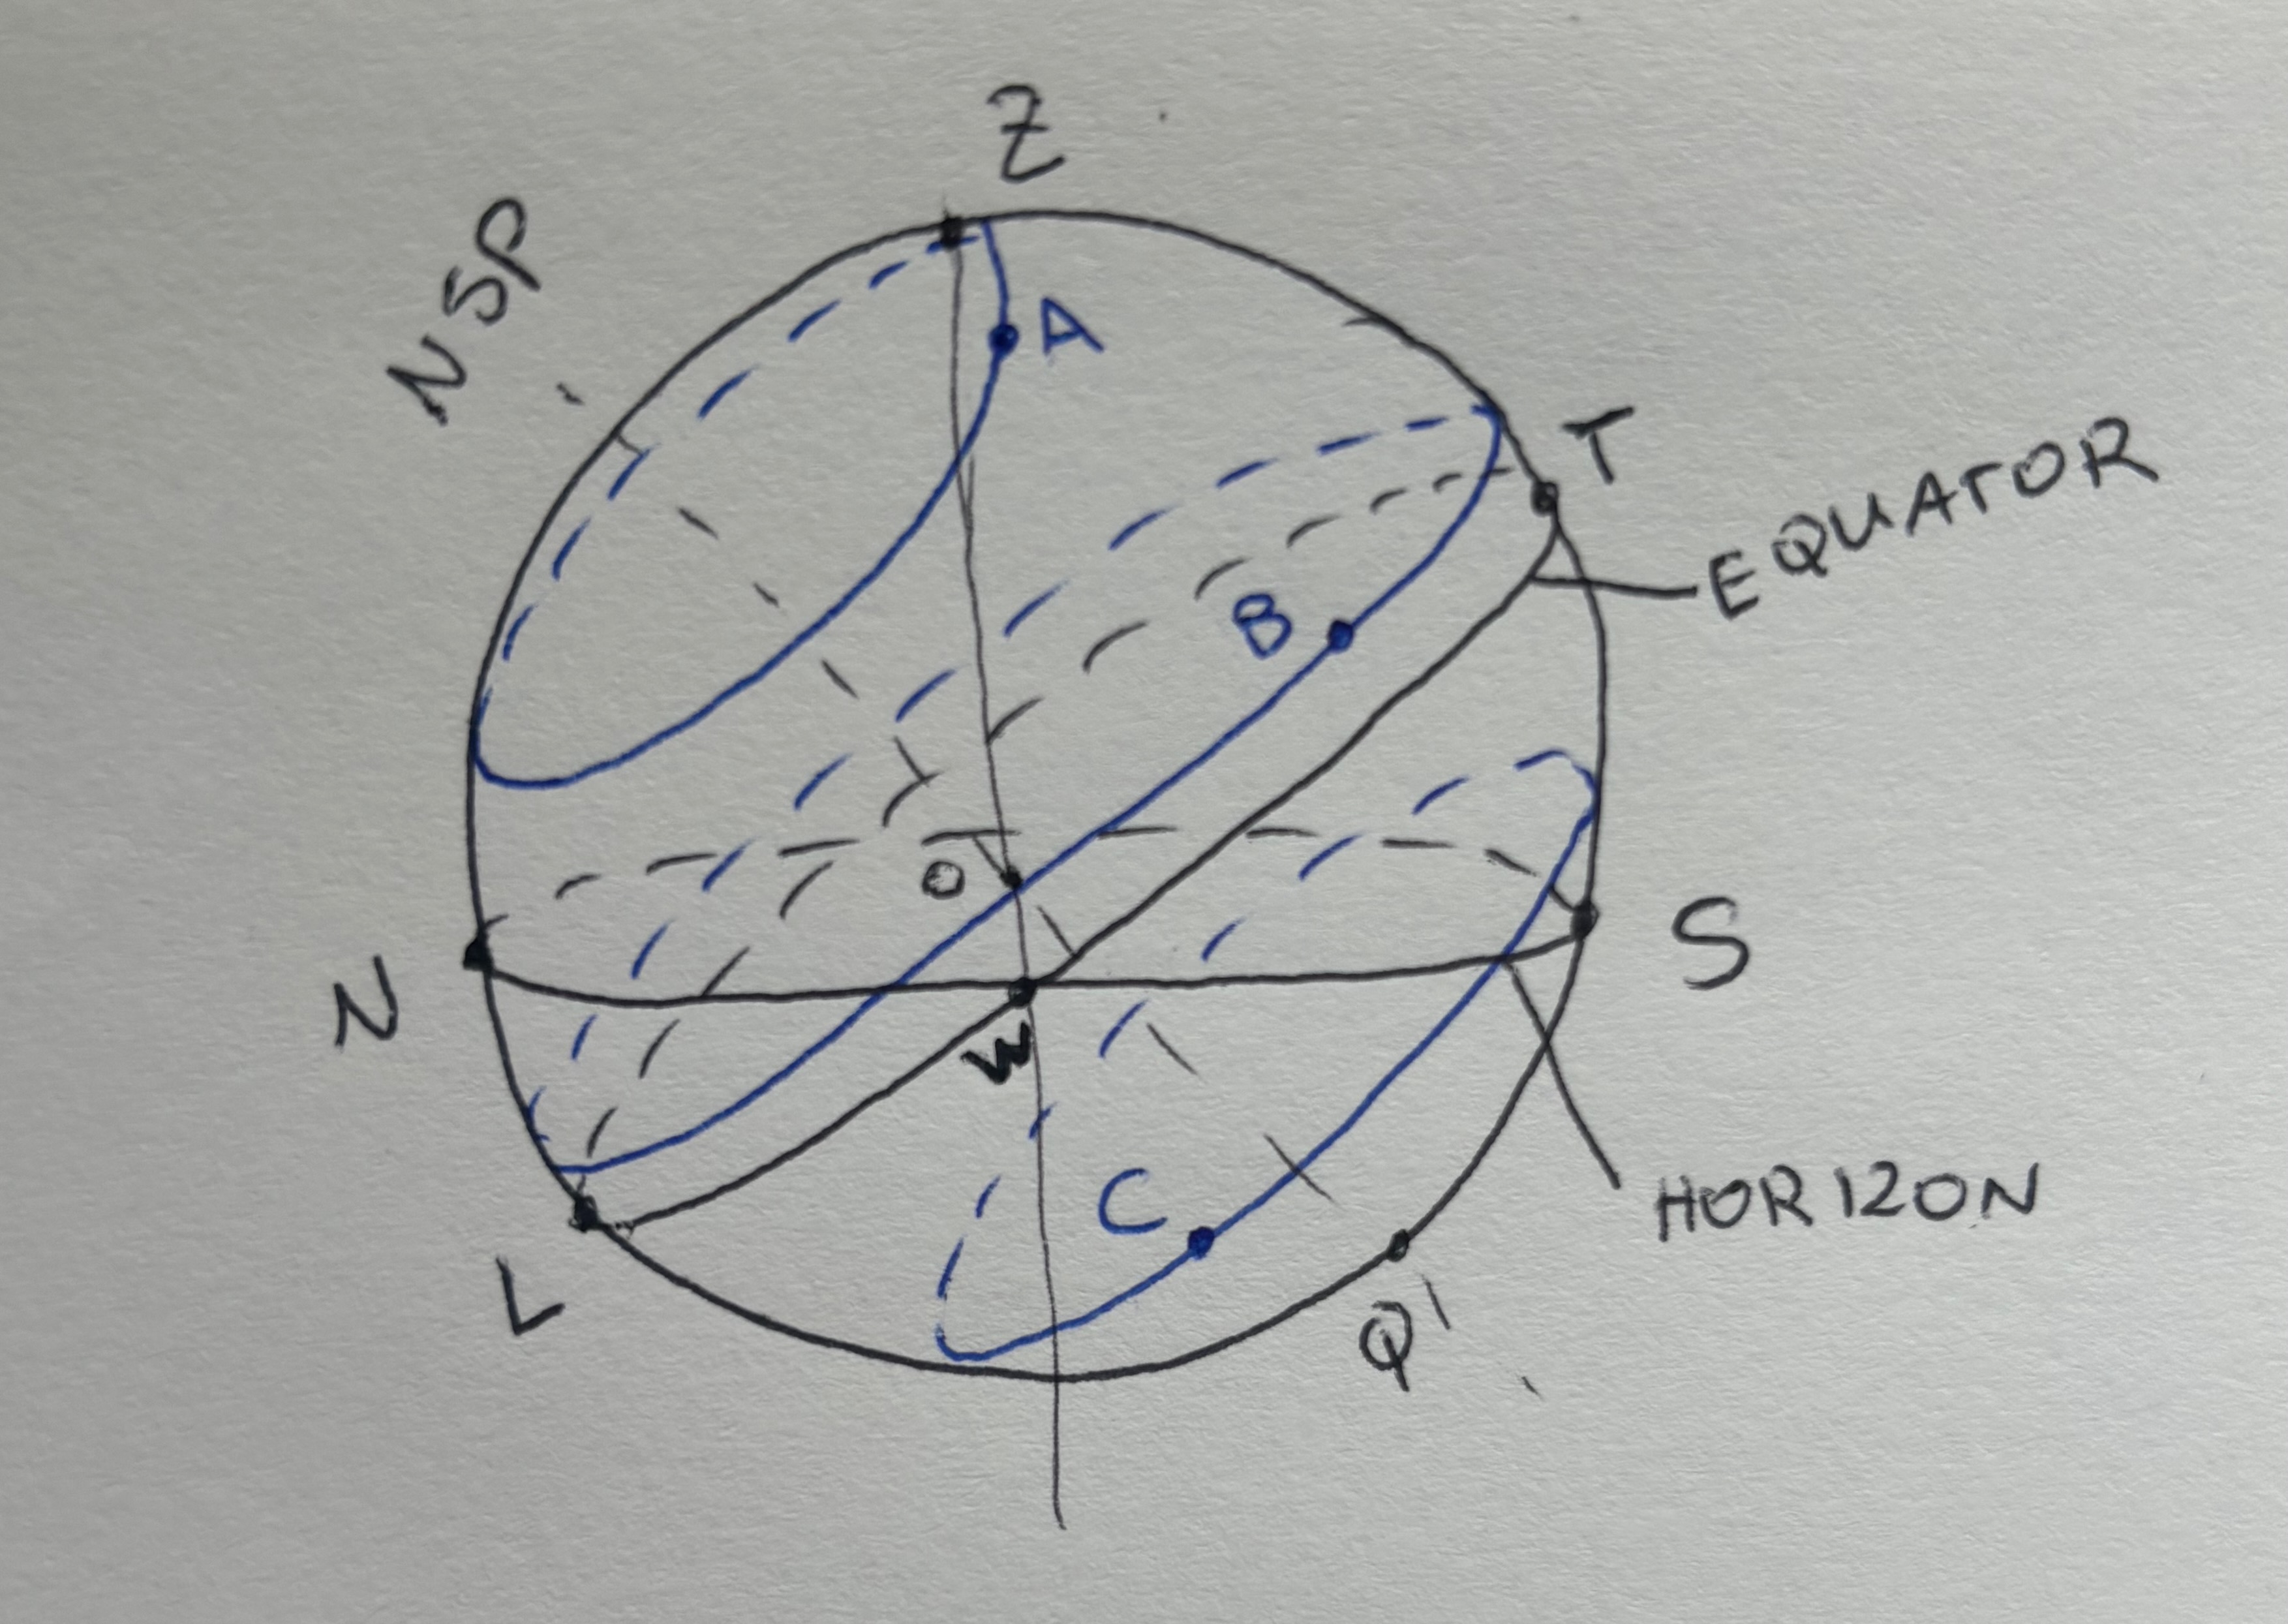 Z
NSP
A
T
EQUATOR
B
O
N
S
W
C
HORIZON
L
Q'